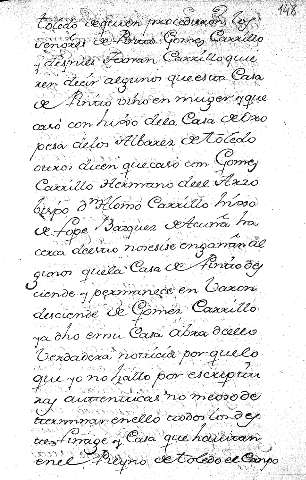 148
toledo de quien procedieron los
señores de Pinto Gomez Carrillo
y despues Ferran Carrillo quie
ren decir algunos que esta Casa
de Pinto vino en muger y que
casó con hijo de la Casa de Oro
pesa de los Albarez de toledo
otros dicen que casó con Gomez
Carrillo Hermano de el Arzo
bispo Dn Alonso Carrillo hijo
de Lope Bazquez de Acuña ha
cerca de esto no es si se engañan al
gunos que la Casa de Pinto des
ciende y permanece en Varon
desciende de Gomez Carrillo
ya dho en su Casa abra de ello
Verdadera noticia por que lo
que yo no hallo por escriptu
ras autenticas no me oso de
terminar en ello todos los des
te linage y Casa que havitan
en el Reyno de Toledo el Campo